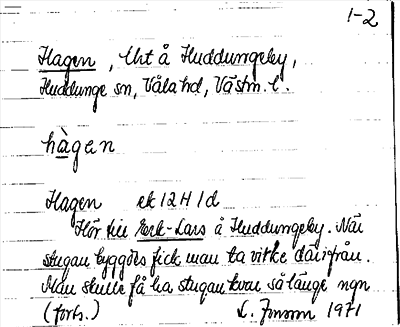 1-2
Hagen, lht å Huddungeby,
Huddunge sn, Våla hd, Västm. l.
hàgen
Hagen ek 12H1d
Hör till Erk-Lars å Huddungeby. När
stugan byggdes fick man ta virke därifrån.
Man skulle få ha stugan kvar så länge ngn
(forts.) Jonson 1971